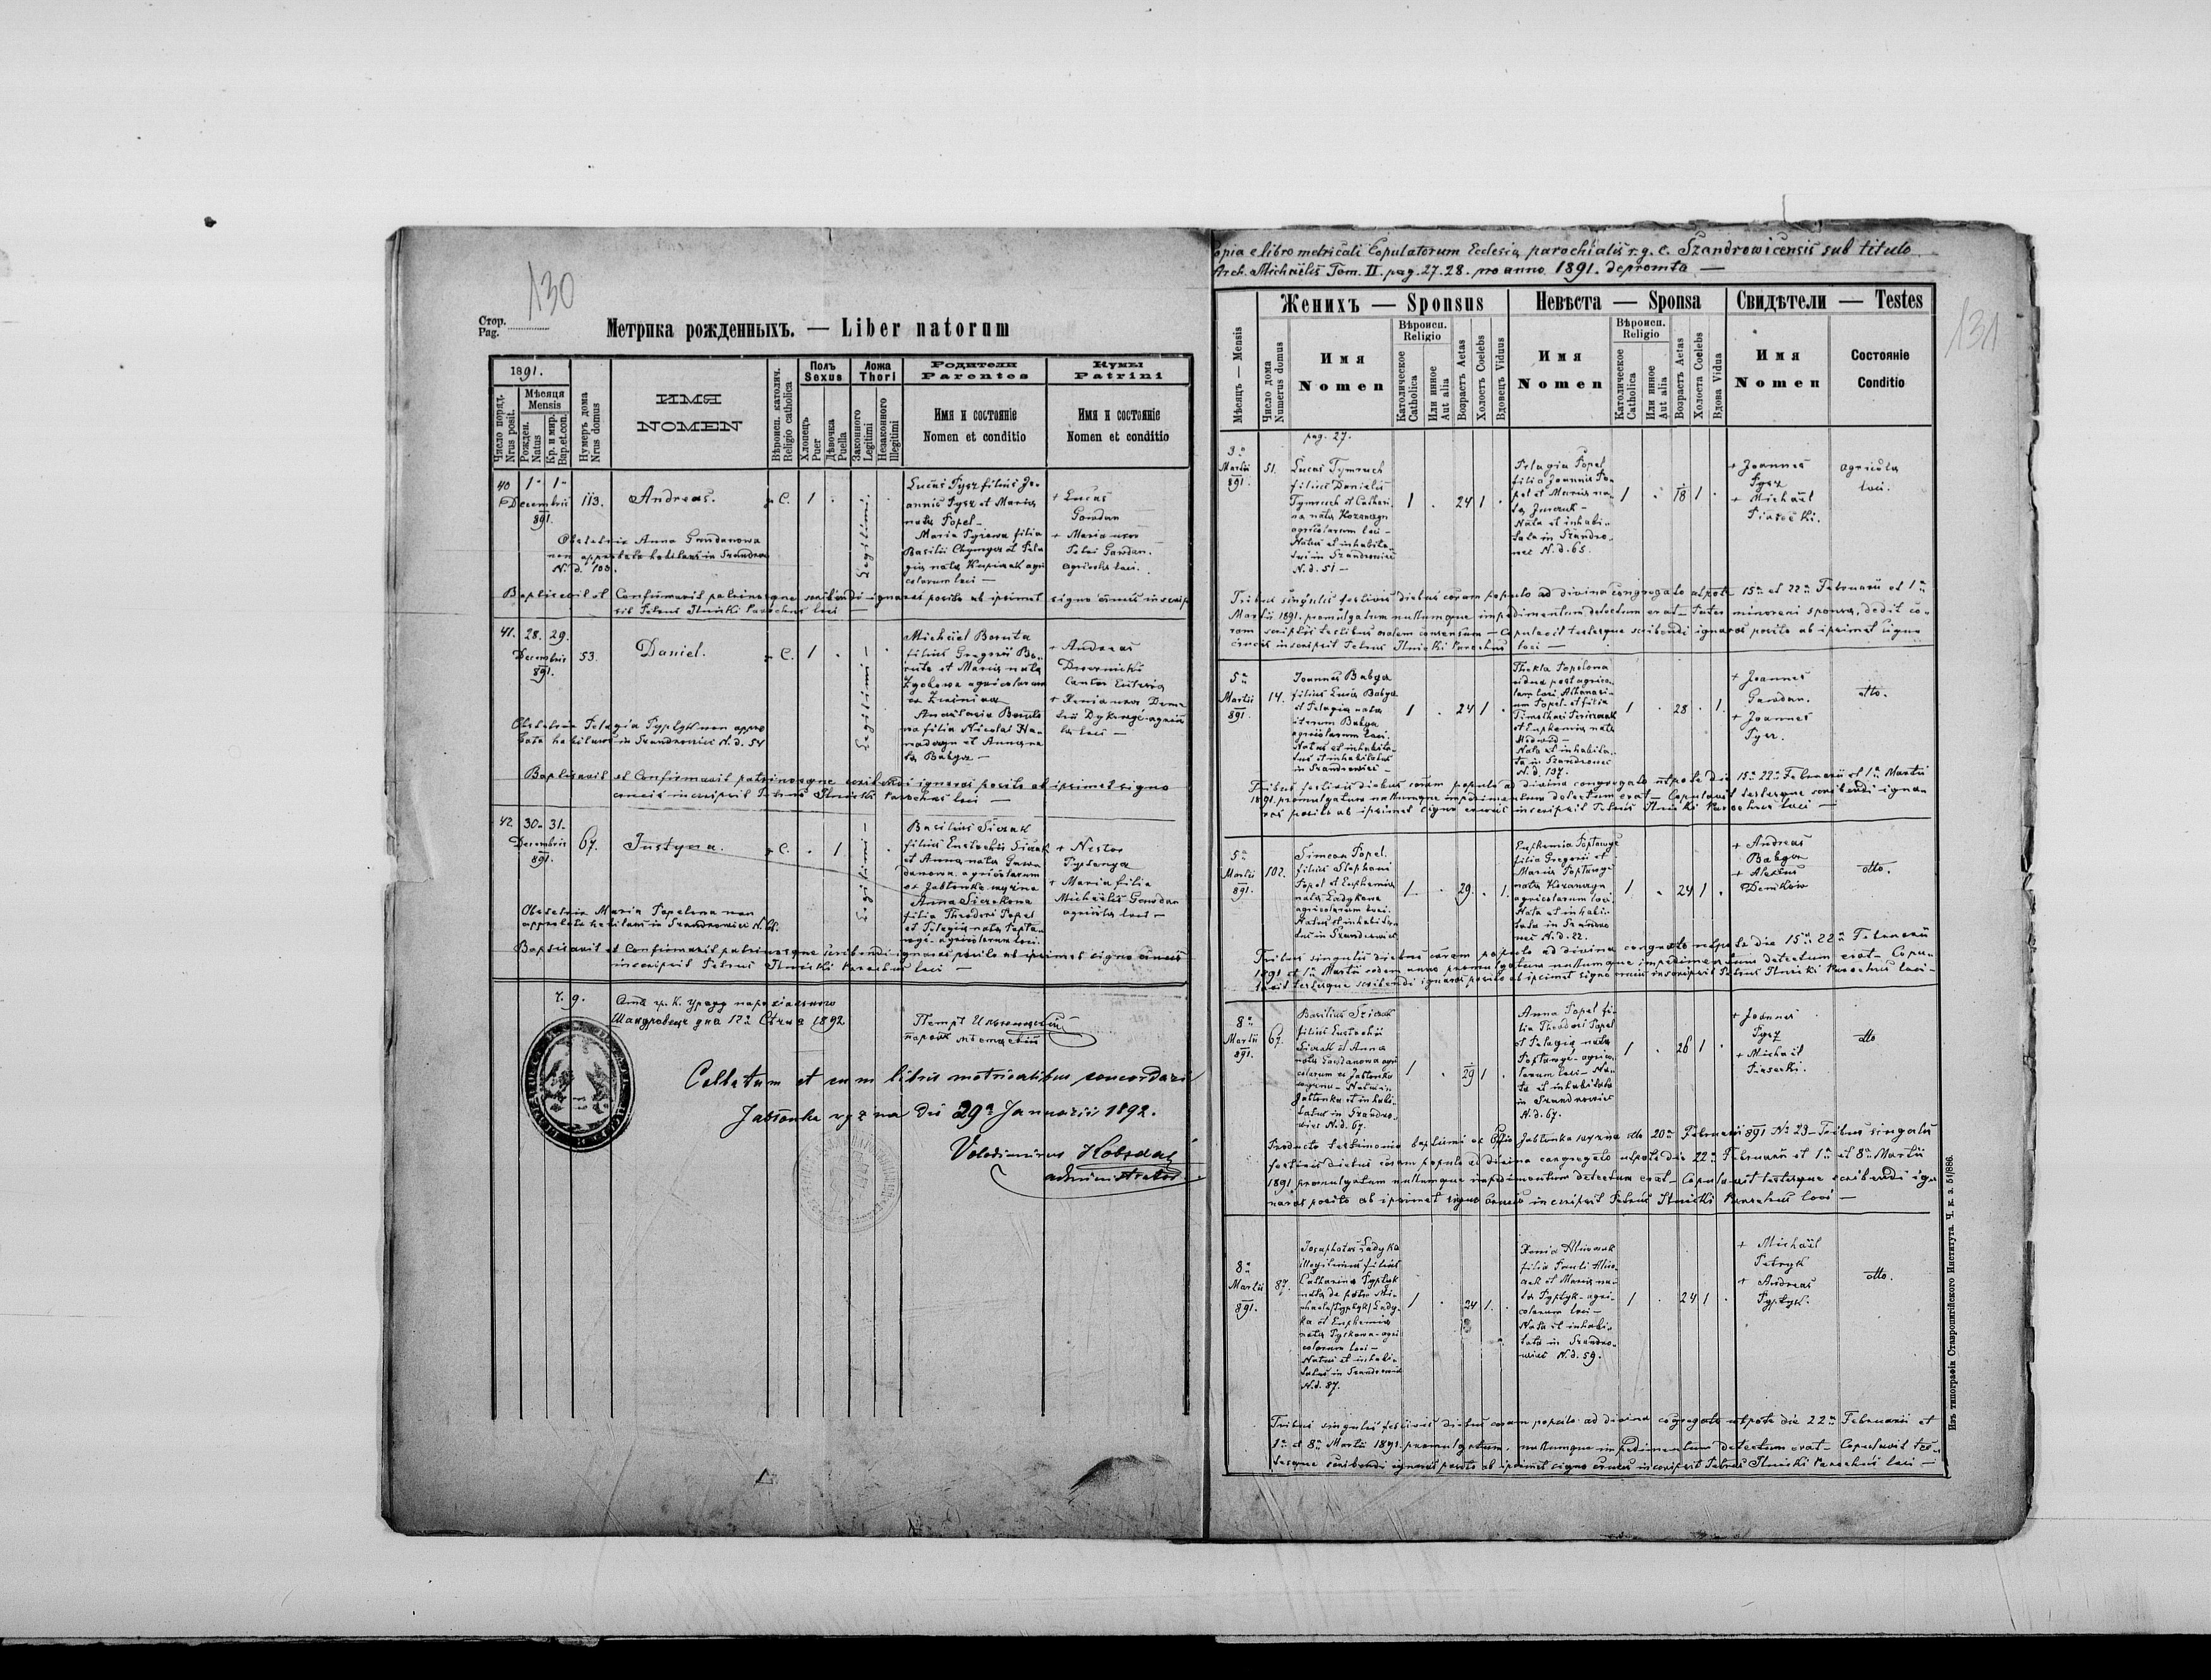 130
Стор.
Pag.
Метрика рожденныхъ. — Liber natorum
1891.
Число поряд.
Nrus posit.
Мѣсяця
Mensis
Рожден.
Natus
Кр. и мир.
Bap.et.con.
Нумеръ дома
Nrus domus
ИМЯ
NOMEN
Вѣроисп. католич.
Religio catholica
Полъ
Sexus
Хлопецъ
Puer
Дѣвочка
Puella
Ложа
Thori
Законного
Legitimi
Незаконного
Illegitimi
Родители
Parentes
Имя и состояніе
Nomen et conditio
Кумы
Patrini
Имя и состояніе
Nomen et conditio
40 1. 1. Decembris 891. 113. Andreas. g. C. 1 Legitimi
Lucas Tysz filius Jo-
annis Tysz et Maria
nata Popel —
Maria Tyszowa filia
Basilii
et Pela
gia nata
agri
colarum loci —
+ Lucas
Gawdan
+ Maria uxor
Petri Gawdan.
agricolae loci.
Obstetrix Anna Gawdanowa
non approbata habitans in Szandrow
N. d. 103.
Baptisavit et Confirmavit patrinosque scribendi ignaros posito ab ipsimet signo crucis inscrip
sit Petrus Ilnicki Parochus loci —
41. 28. 29. Decembris 891. 53. Daniel. g. C. 1 Legitimi —
Michael Boruta
filius Gregorii Bo-
ruta et Maria nata
agricolarum
ex
Anastasia Boruto
wa filia Nicolai Ha-
et Anna na
ta Babya —
+ Andreas
Cantor Ecclesia
+ Xenia uxor Deme
trii
agrico
la loci —
Obstetrix Pelagia Typtyk non appro
bata habitans in Szandrowiec N. d. 54
Baptisavit et Confirmavit patrinosque scribendi ignaros posito ab ipsimet signo
crucis inscripsit Petrus Ilnicki Parochus loci —
42. 30. 31. Decembris 891. 67. Justyna. g. C. 1 Legitimi —
Basilius Siczak
filius Eustachii Siczak
et Anna nata Gaw
danowa agricolarum
ex Jabłonka wyżna
Anna Siczakowa
filia Theodori Popel
et Pelagia nata
agricolarum loci.
+ Nestor
+ Maria filia
Michaelis Gawdan
agricola loci —
Obstetrix Maria Popelowa non
approbata habitans in Szandrowiec N.
Baptisavit et Confirmavit patrinosque scribendi ignaros posito ab ipsimet signo crucis
inscripsit Petrus Ilnicki Parochus loci —
Ч. 9.
Отъ гр. К. уряду парохіяльного
Шандровець дня 12а Січня 1892
Петръ Ильницкій
парохъ мѣстцевый
Collatum et cum libris metricalibus concordari
Jabłonka wyżna die 29a Januarii 1892.
Volodimirus
administrator
Copia e libro metricali Copulatorum Ecclesia parochialis r. g. c. Szandrowicensis sub titulo
Arch. Michaëlis Tom. II. pag. 27. 28. pro anno 1891. depromta —
131
Мѣсяць — Mensis
Число дома
Numerus domus
Женихъ — Sponsus
Имя
Nomen
Вѣроисп.
Religio
Католическое
Catholica
Или инное
Aut alia
Возрастъ Aetas
Холостъ Coelebs
Вдовецъ Viduus
Невѣста — Sponsa
Имя
Nomen
Вѣроисп.
Religio
Католическое
Catholica
Или инное
Aut alia
Возрастъ Aetas
Холоста Coelebs
Вдова Vidua
Свидѣтели — Testes
Имя
Nomen
Состояніе
Conditio
pag. 27.
3a Martii 891. 51.
Lucas Tymruch
filius Danielis
Tymruch et Cathari-
na nata
agricolarum loci —
Natus et inhabita
tus in Szandrowiec
N. d. 51 —
1 24 1
Pelagia Popel
filia Joannis Po-
pel et Maria na-
ta Jurczak —
Nata et inhabi-
tata in Szandro-
wiec N. d. 65.
1 18 1
+ Joannes
Tysz
+ Michaël
Piasecki.
agricola
loci.
Tribus singulis festivis diebus coram populo ad divina congregato utpote 15a et 22a Februarii et 1a
Martii 1891. promulgatum nullumque impedimentum detectum erat — Tutor minoreni sponsa, dedit co-
ram scriptis testibus oralem consensum — Copulavit testesque scribendi ignaros posito ab ipsimet signo
crucis inscripsit Petrus Ilnicki Parochus loci —
5a Martii 891. 14.
Joannes Babya
filius Luca Babya
et Pelagia nata
iterum Babya
agricolarum loci.
Natus et inhabita-
tus et inhabitatus
in Szandrowiec —
1 24 1
Thekla Popelowa
vidua post agrico-
lam loci Athanasi-
um Popel et filia
Timothei
et Euphemia nata
Nata et inhabita-
ta in Szandrowiec
N. d. 137.
1 28 1.
+ Joannes
Gawdan.
+ Joannes
Tysz.
dtto.
Tribus festivis diebus coram populo ad divina congregato utpote die 15a 22a Februarii et 1a Martii
1891. promulgatum nullumque impedimentum detectum erat — Copulavit testesque scribendi igna-
ros posito ab ipsimet signo crucis inscripsit Petrus Ilnicki Parochus loci —
5a Martii 891. 102.
Simeon Popel
filius Stephani
Popel et Euphemia
nata Ladykowa
agricolarum loci.
Natus et inhabita
tus in Szandrowiec
1. 29. 1.
Euphemia
filia Gregorii et
Maria
nata
agricolarum loci.
Nata et inhabi-
tata in Szandro
wiec N. d. 22.
1 24 1
+ Andreas
Babya
+ Alexius
Denikow
dtto.
Tribus singulis diebus coram populo ad divina congregato utpote die 15a 22a Februarii
1891 et 1a Martii eodem anno promulgatum nullumque impedimentum detectum erat — Copu-
lavit testesque scribendi ignaros posito ab ipsimet signo crucis inscripsit Petrus Ilnicki Parochus loci —
8a Martii 891. 67.
Basilius Siczak
filius Eustachii
Siczak et Anna
nata Gawdanowa agri
colarum ex Jabłonka
wyżna — Natus in
Jabłonka et inhabi-
tatus in Szandro-
wiec N. d. 67.
1 29 1
Anna Popel fi-
lia Theodori Popel
et Pelagia nata
agrico-
larum loci — Na-
ta et inhabitata
in Szandrowiec
N. d. 67.
1 26 1
+ Joannes
Tysz
+ Michaël
Piasecki.
dtto
Producto testimonio baptismi ex Offo Jabłonka wyżna dtto 20a Februarii 891 No 23 — Tribus singulis
festivis diebus coram populo ad divina congregato utpote die 22a Februarii et 1a et 8a Martii
1891 promulgatum nullumque impedimentum detectum erat — Copulavit testesque scribendi ig-
naros posito ab ipsimet signo crucis inscripsit Petrus Ilnicki Parochus loci —
8a Martii 891. 87.
Josaphatus Ladyka
illegitimus filius
Catharina Typtyk
nata de patre Mi-
chaele Typtyk / Lady-
ka et Euphemia
nata Tyskowa — agri
colarum loci —
Natus et inhabi-
tatus in Szandrowiec
N. d. 87.
1 24 1.
Xenia
filia Pauli
et Maria na-
ta Typtyk — agri-
colarum loci —
Nata et inhabi-
tata in Szandro-
wiec N. d. 59.
1 24 1
+ Michaël
Petryk
+ Andreas
Typtyk.
dtto.
Tribus singulis festivis diebus coram populo ad divina cogregato utpote die 22a Februarii et
1a et 8a Martii 1891. promulgatum, nullumque impedimentum detectum erat — Copulavit tes-
tesque scribendi ignaros posito ab ipsimet signo crucis inscripsit Petrus Ilnicki Parochus loci —
Изъ типографіи Ставропигійского Института. Ч. к. з. 51/886.